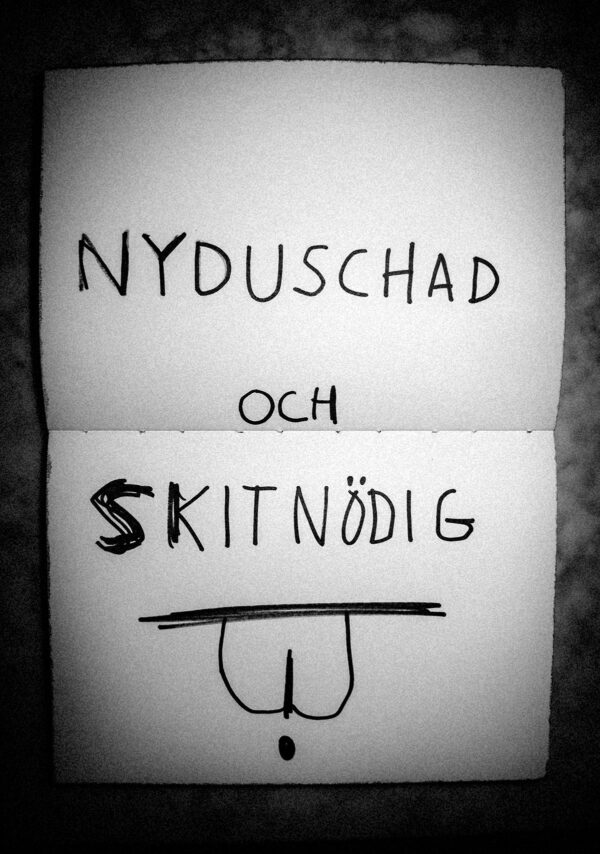 NYDUSCHAD
OCH
SKITNÖDIG